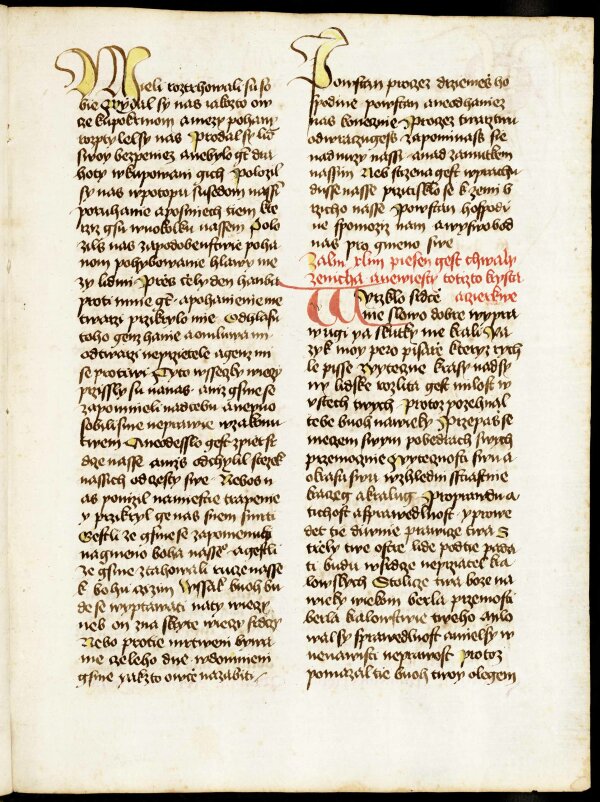 Mieli roztrhowali su so
bie Wydal sy nas iakzto ow
ce kupokrmom a mezy pohany
rozpty lel sy nas Prodal sy lid
swoy bez peniez a nebylo gt dra
hoty w kupowani gich Polozil
sy nas w potupu susedom nassim
poruhanie a posmiech tiem kte
rziz gsu w uokolku nassem Polo
zils nas za podobenstwie poha
nom pohybowanie hlawy me
zy lidmi Przes cely den hanba
proti mnie gt a pohanienie me
twarzi przikrylo mie Od hlasu
toho genz hanie a omluwa mi
od twarzi neprzietele a genz mi
se protiwi Tyto wsseczky wieczy
przissly su na nas a niz gsme se
zapomieli nad tebu a neprio
sobili sme neprawie w zakonu
twem A neodesslo gest zpiet sr
dce nasse a nizs odchylil stezek
nassich od cesty swe Nebo s n
as ponizil na miestie trapenie
y przikryl ge nas stien smrti
Gestli ze gsme se zapomenuli
na gmeno boha nasseho a gestli
ze gsme ztahowali rucze nasse
k bohu czizim Wssak buoh bu
de se wyptawati na ty wieczy
neb on zna skryte wieczy srdczy
Nebo protie mrtweni bywa
me czeleho dne w domnieni
gsme yakzto owce na zabiti
Powstan proczez drziemes ho
spodine powstan a neodhaniez
nas konecznie Proczez twarz twu
odwraczuges zapominass sie
nad nuzy nassi a nad zamutkem
nassim Neb strzena gest w prachu
dusse nasse przitisklo se k zemi b
rzicho nasse Powstan hospodi
ne spomoz nam a wyswobod
nas pro gmeno swe
Zalm xliiii piesen gest chwaly
zenicha a newiesty totizto krysta
a cierkwe
Wyrzklo srdce
me slowo dobre wypra
wugi ya skutky me krali Ja
zyk moy pero pisarze kteryz rych
le pisse Wytecznie krasy nad sy
ny lidske rozlita gest milost w
ustech twych Protoz pozehnal
tebe buoh na wieky Przepas se
meczem swym po bedrach swych
przemocznie Wytecznosti swu a
okrasu swu w zhledni sstiastnie
kraczeg a kralug Pro prawdu a
tichost a sprawedlnost y prowe
det tie diwnie prawice twa S
triely twe ostre lide pod tie pada
ti budu w srdce neprzatel kra
lowskych Stolice twa boze na
wieky wiekom berla przemosti
berla kralowstwie tweho milo
wal sy sprawedlnost a miel sy w
nenawisti neprawost Protoz
pomazal tie buoh twoy olegem